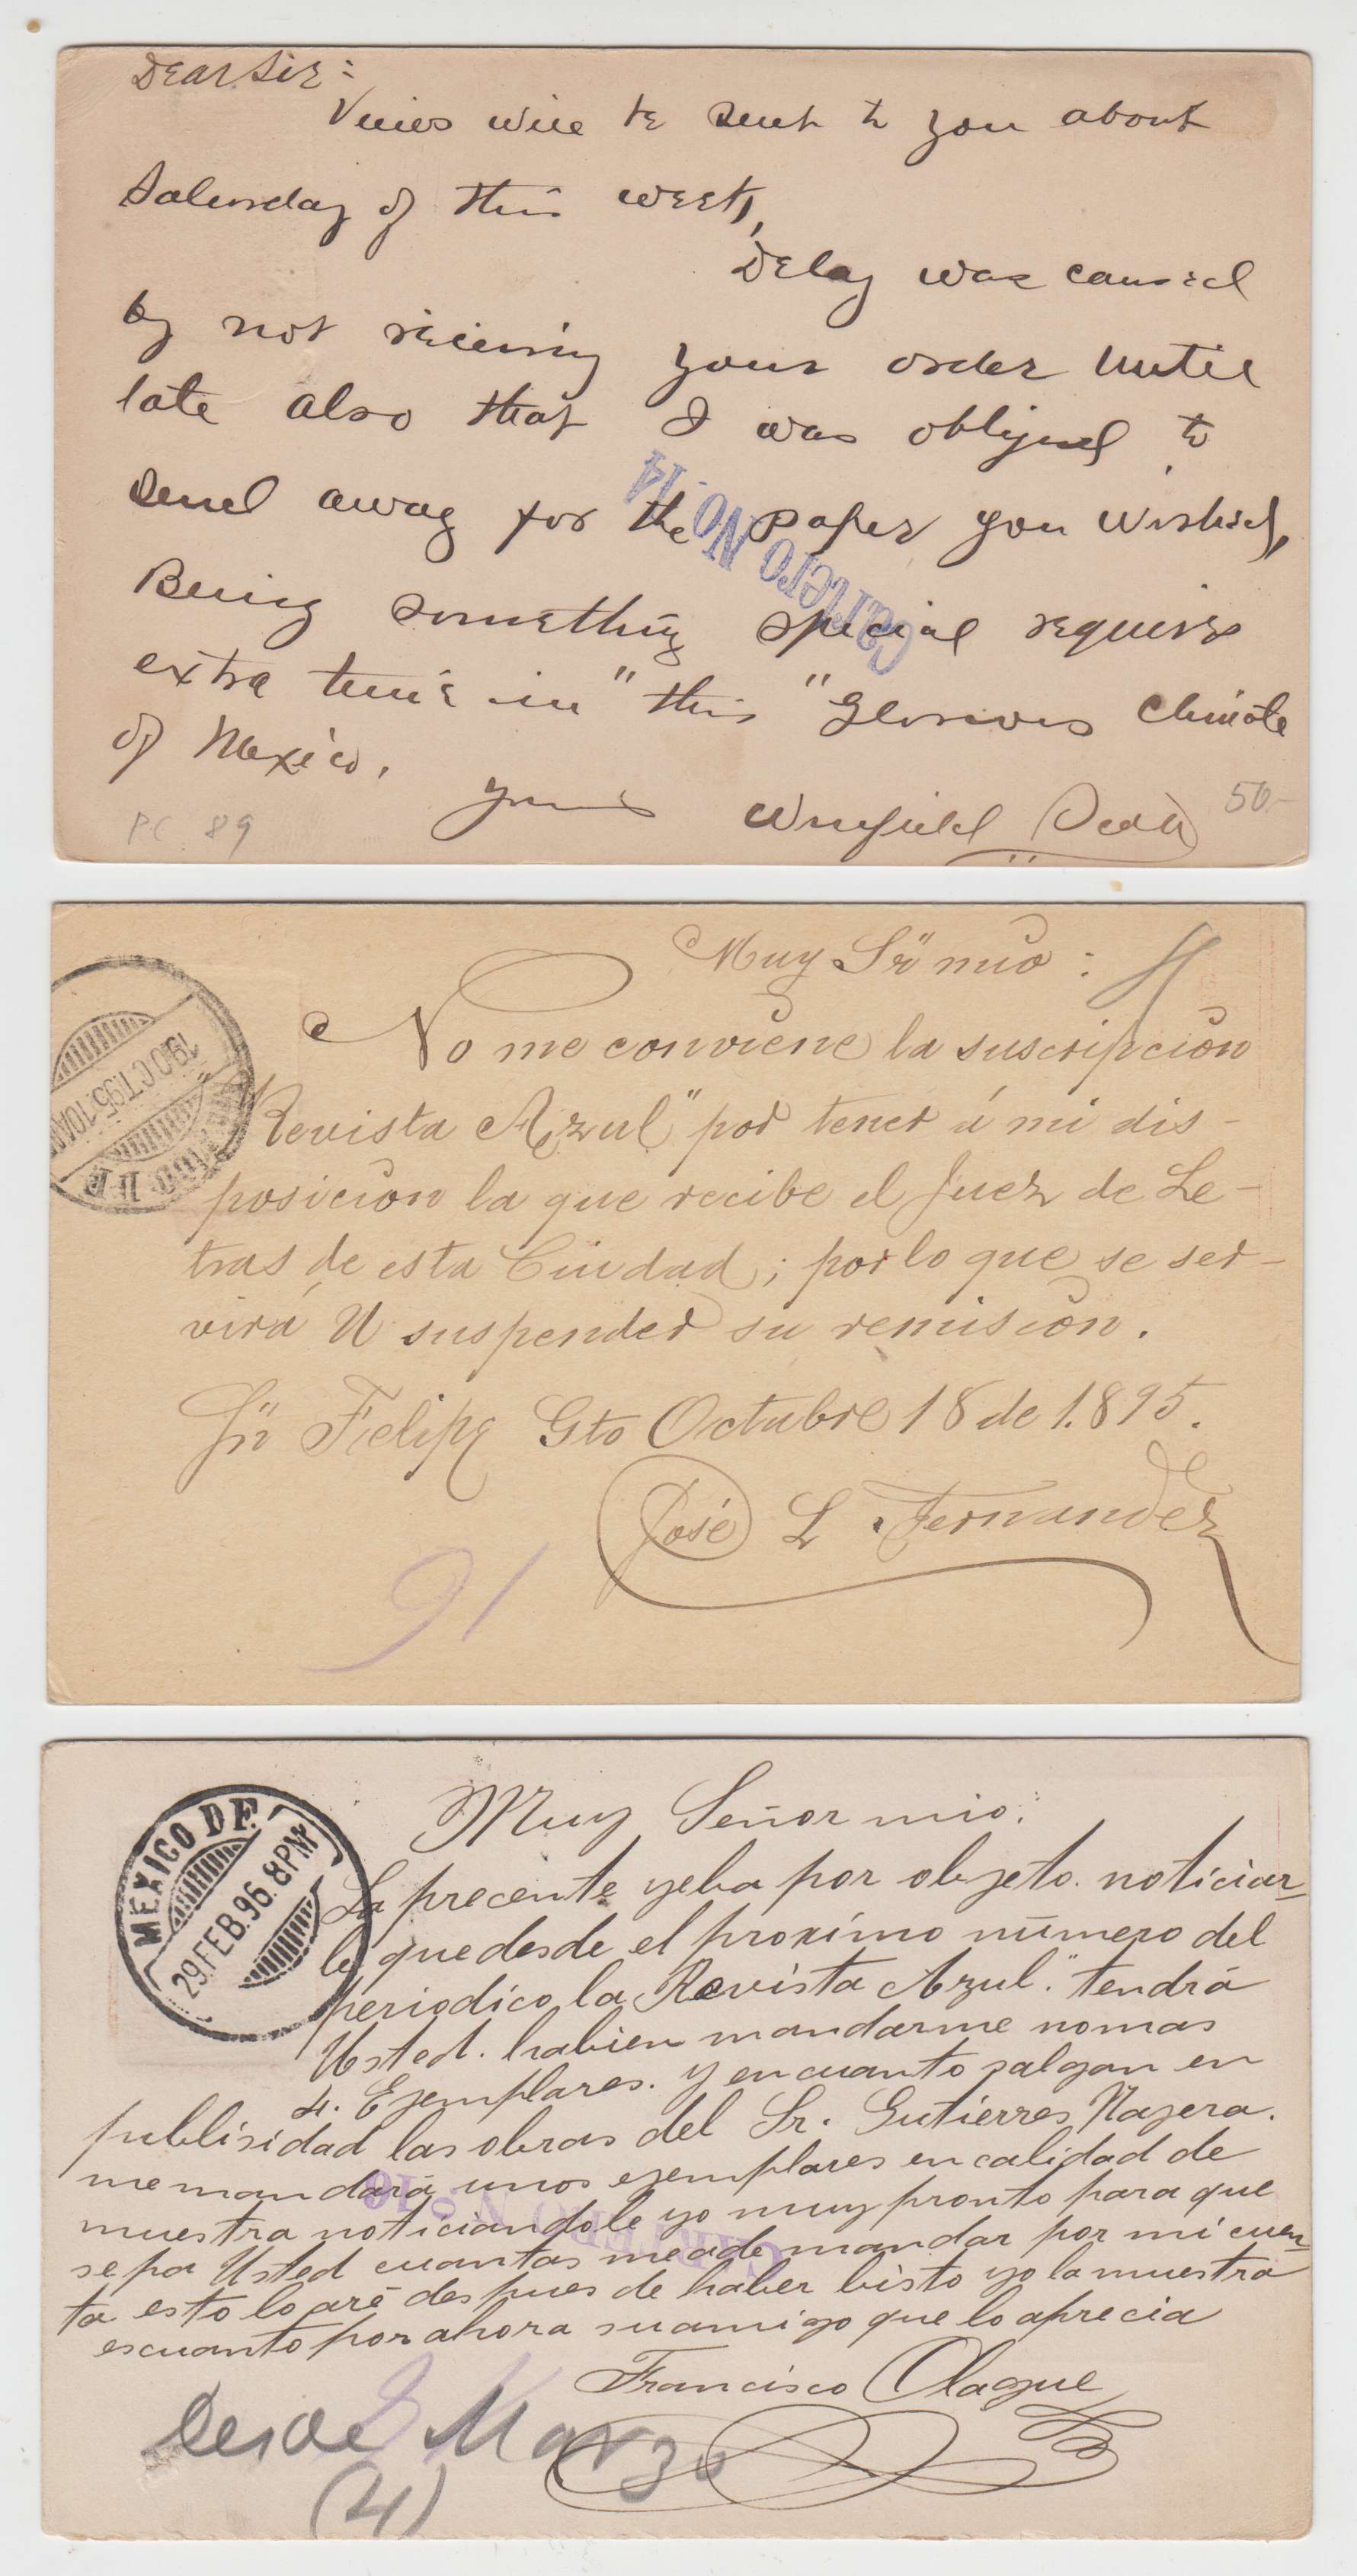 Dear Sir:
Views will be sent to you about
Saturday of this week,
Delay was caused
by not receiving your order until
late also that I was obliged to
send away for the paper you wished,
Being something special requires
extra time in "this" "Glorious climate
of Mexico.
Yours Winfield Scott
50-
PC 89
Cartero No. 14
Muy Sr mio:
No me conviene la suscripcion
"Revista Azul" por tener á mi dis-
posicion la que recibe el Juez de Le-
tras de esta Ciudad; por lo que se ser-
virá U suspender su remision.
Sn Felipe Gto Octubre 18 de 1.895.
José L. Fernandez
91
19 OCT. 95. 10 AM
D.F.
Muy Señor mio.
La precente yeba por objeto. noticiar-
le que desde el proximo número del
periodico la Revista Azul." tendrá
Usted. habien mandarme nomas
4. Ejemplares. y en cuanto salgan en
publisidad las obras del Sr. Gutierres Najera.
me mandará unos ejemplares en calidad de
muestra noticiandole yo muy pronto para que
sepa Usted cuantas me ade mandar por mi cuen-
ta esto lo aré despues de haber bisto yo la muestra
es cuanto por ahora su amigo que lo aprecia
Francisco Olague
Desde Marzo
(4)
MEXICO D.F.
29. FEB. 96. 8 PM
CARTERO No 16